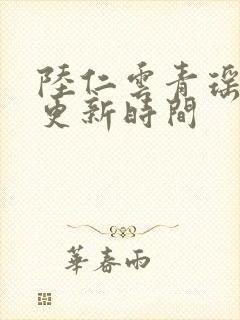 陸仁雲青瑶
更新時間
華春雨